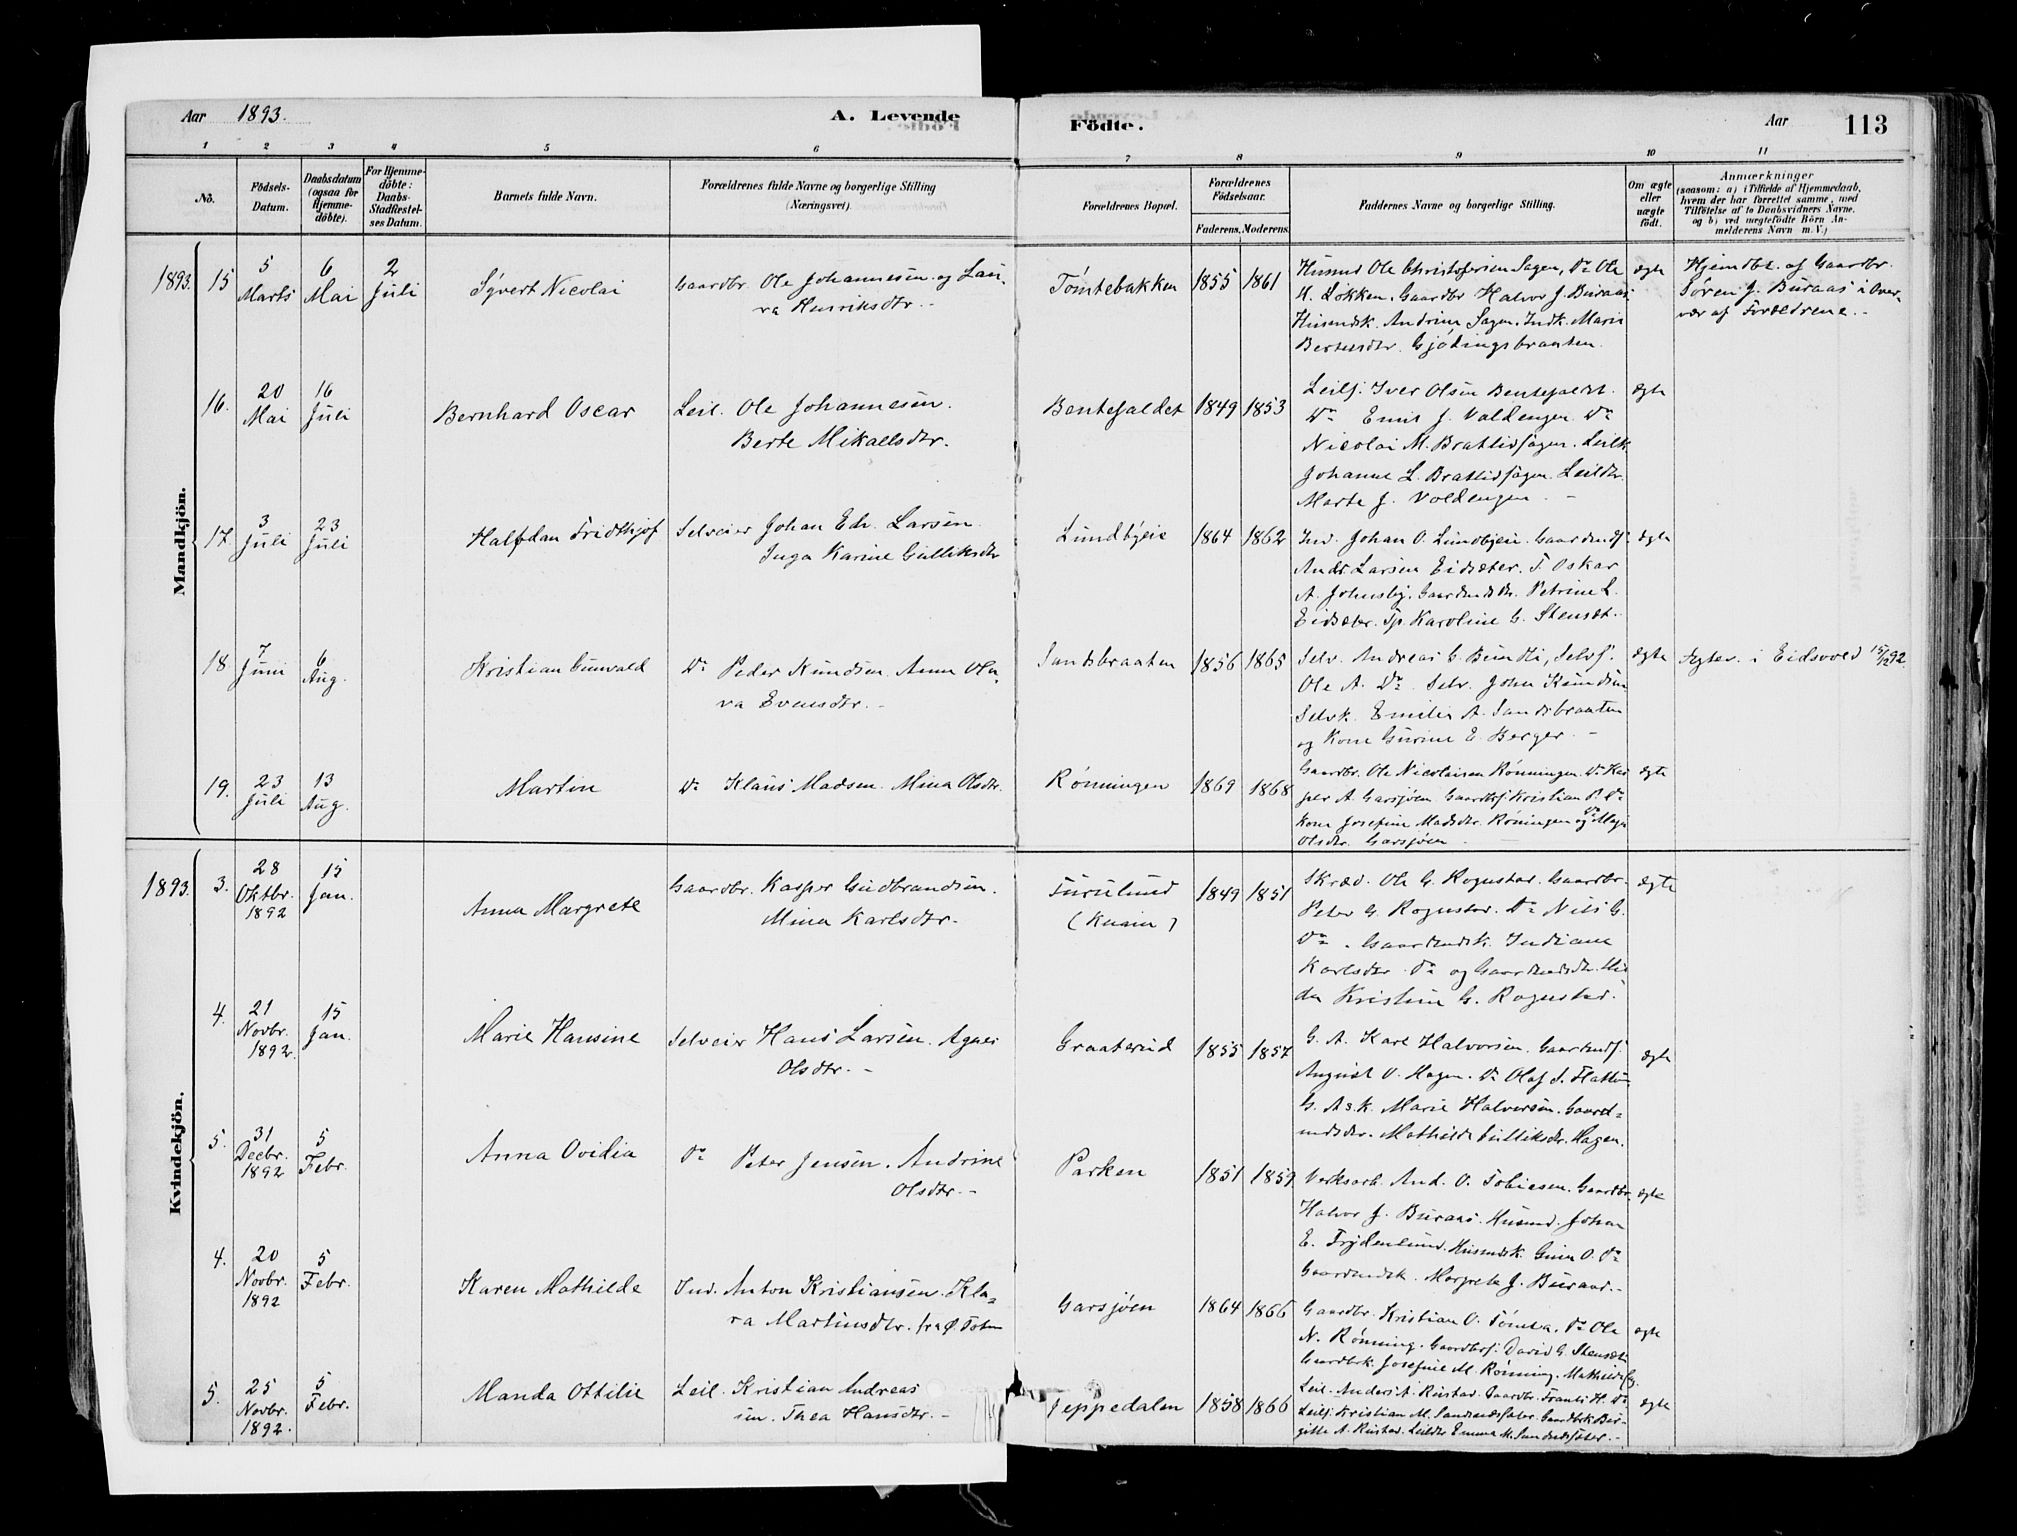 Aar 1893.
A. Levende
Födte.
Aar
113
1 2 3 4 5 6 7 8 9 10 11
No.
Födsels-
Datum.
Daabsdatum
(ogsaa for
Hjemme-
döbte).
For Hjemme-
döbte:
Daabs-
Stadfæstel-
ses Datum.
Barnets fulde Navn.
Forældrenes fulde Navne og borgerlige Stilling
(Næringsvei).
Forældrenes Bopæl.
Forældrenes
Födselsaar.
Faderens. Moderens.
Faddernes Navne og borgerlige Stilling.
Om ægte
eller
uægte
födt.
Anmærkninger
(saasom: a) i Tilfælde af Hjemmedaab,
hvem der har forrettet samme, med
Tilföielse af to Daabsvidners Navne,
og b) ved uægtefödte Börn An-
melderens Navn m. V.)
Mandkjön.
1893. 15 5 Marts 6 Mai 2 Juli
Syvert Nicolai
Gaardbr. Ole Johannesen og Lau-
ra Henriksdtr. -
Tømtebakken 1855 1861
Husmd Ole Christofersen Sagen, Do Ole
H. Løkken. Gaardbr Halvor J. Buraas
Husmdsk. Andrine Sagen. Indk. Marie
Berteusdtr. Gjødingsbraaten.
ægte
Hjemdbt. af Gaardbr.
Søren J. Buraas i Over-
vær af Forældrene. -
16. 20 Mai 16 Juli
Bernhard Oscar
Leil. Ole Johannesen.
Berte Mikaelsdtr.
Bentefaldet 1849 1853
Leilf. Iver Olsen Bentefaldet.
Do Emil J. Voldengen Do
Nicolai M. Brattlidsagen. Leilk
Johanne L. Brattlidsagen. Leildtr.
Marte J. Voldengen. -
ægte
17. 3 Juli 23 Juli
Halfdan Fridthjof
Selveier Johan Edv. Larsen.
Inga Karine Gulliksdtr
Lundbyeie 1864 1862
Ind. Johan O. Lundbyeie. Gaardmdsf.
Andr. Larsen Eidsæter. F. Oskar
A. Johnsby. Gaardmdsdtr. Petrine L.
Eidsæter. Tp. Karoline G. Stensæt.
ægte
18 7 Juni 6 Aug.
Kristian Gunvald
Do Peder Knudsen. Anna Ola-
va Evensdtr. -
Sandsbraaten 1856 1865
Selv. Andreas G. Bundli, Selvf.
Ole A. Do Selv. John Knudsen
Selvk. Emilie A. Sandsbraaten
og Kone Gurine E. Berger. -
ægte
Ægtev. i Eidsvold 15/12 92.
19. 23 Juli 13 Aug.
Martin
Do Klaus Madsen. Mina Olsdtr.
Rønningen 1869 1868
Gaardbr. Ole Nicolaisen Rønningen. Do Kas
per A. Garsjøen Gaardbrf. Kristian P. Do
Kone Josefine Madsdtr. Rønningen og Do Maja
Olsdtr. Garsjøen -
ægte
Kvindekjön.
1893. 3. 28 Oktbr. 1892 15 Jan.
Anna Margrete
Gaardbr. Kasper Gudbrandsen.
Mina Karlsdtr.
Furulund
1849 1851
Skræd. Ole G. Rognstad. Gaardbr.
Peter G. Rognstad. Do Nils G.
Do. Gaardmdsk. Indiane
Karlsdtr. Do og Gaardmdsdtr.
da Kristine G. Rognstad.
ægte
4. 21 Novbr. 1892. 15 Jan.
Marie Hansine
Selveier Hans Larsen. Agnes
Olsdtr. -
Graaterud 1855 1857
G. A. Karl Halvorsen. Gaardmdsf.
August O. Hagen. Do Olaf S. Flattum
G. A.s.k. Marie Halvorsen. Gaard-
mdsdtr. Mathilde Gulliksdtr. Hagen.
ægte
5. 31 Decbr. 1892 5 Febr.
Anna Ovidia
Do Peter Jensen. Andrine
Olsdtr. -
Parken 1851 1859
Verksarb. And. O. Tobiesen. Gaardbr.
Halvor J. Buraas. Husmd. Johan
E. Frydenlund. Husmdsk. Guin O. Do
Gaardmdsk. Margrete J. Buraas. -
ægte
4. 20 Novbr. 1892 5 Febr.
Karen Mathilde
Ind. Anton Kristiansen. Kla-
ra Martinsdtr. fra Ø. Toten
Garsjøen 1864 1866
Gaardbr. Kristian O. Tømta. Do Ole
N. Rønning. Gaardbrf. David G. Stensæt
Gaardbrk. Josefine M. Rønning. Mathilde
ægte
5. 25 Novbr. 1892. 5 Febr.
Manda Ottilie
Leil. Kristian Andreas
sen. Thea Hansdtr. -
Jeppedalen 1858 1866
Leil. Anders A. Rustad. Gaardbr. Frants H. Do
Leilf. Kristian M. Sandnæssæter. Gaardbrk Bir-
gitte A. Rustad. Leildtr Emma M. Sandnæssæter. -
ægte